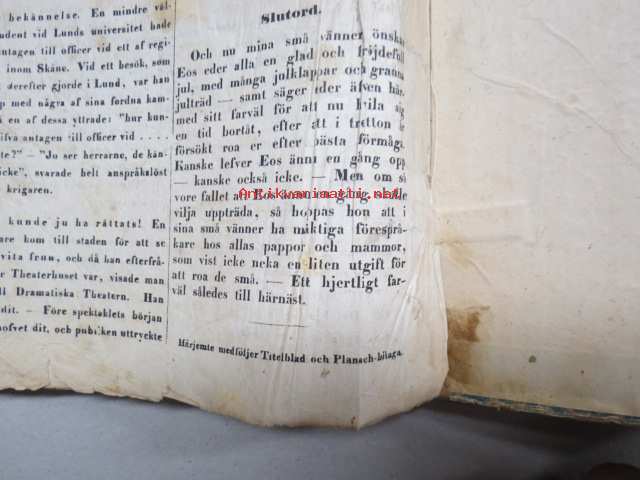 bekännelse. En mindre väl-
dent vid Lunds universitet hade
antagen till officer vid ett af regi-
inom Skåne. Vid ett besök, som
derefter gjorde i Lund, var han
p med några af sina fordna kam-
en af dessa yttrade: "hur kun-
ifva antagen till officer vid . . . .
te?" — "Jo ser herrarne, de kän-
icke", svarade helt anspråkslöst
krigaren.
kunde ju ha råttats! En
are hom till staden för att se
vita frun, och då han efterfrå-
r Theaterhuset var, visade man
ll Dramatiska Theatern. Han
dit. — Före spektaklets början
hofvet dit, och publiken uttryckte
Slutord.
Och nu mina små vänner önskar
Eos eder alla en glad och fröjdefull
jul, med många julklappar och granna
julträd — samt säger eder äfven här-
med sitt farväl för att nu hvila sig
en tid bortåt, efter att i tretton år
försökt roa er efter bästa förmåga.
Kanske lefver Eos ännu en gång opp
— kanske också icke. — Men om så
vore fallet att Eos ännu en gång skulle
vilja uppträda, så hoppas hon att i
sina små vänner ha mäktiga förespråk-
kare hos allas pappor och mammor,
som visst icke neka en liten utgift för
att roa de små. — Ett hjertligt far-
väl således till härnäst.
Härjemte medföljer Titelblad och Plansch-bilaga.